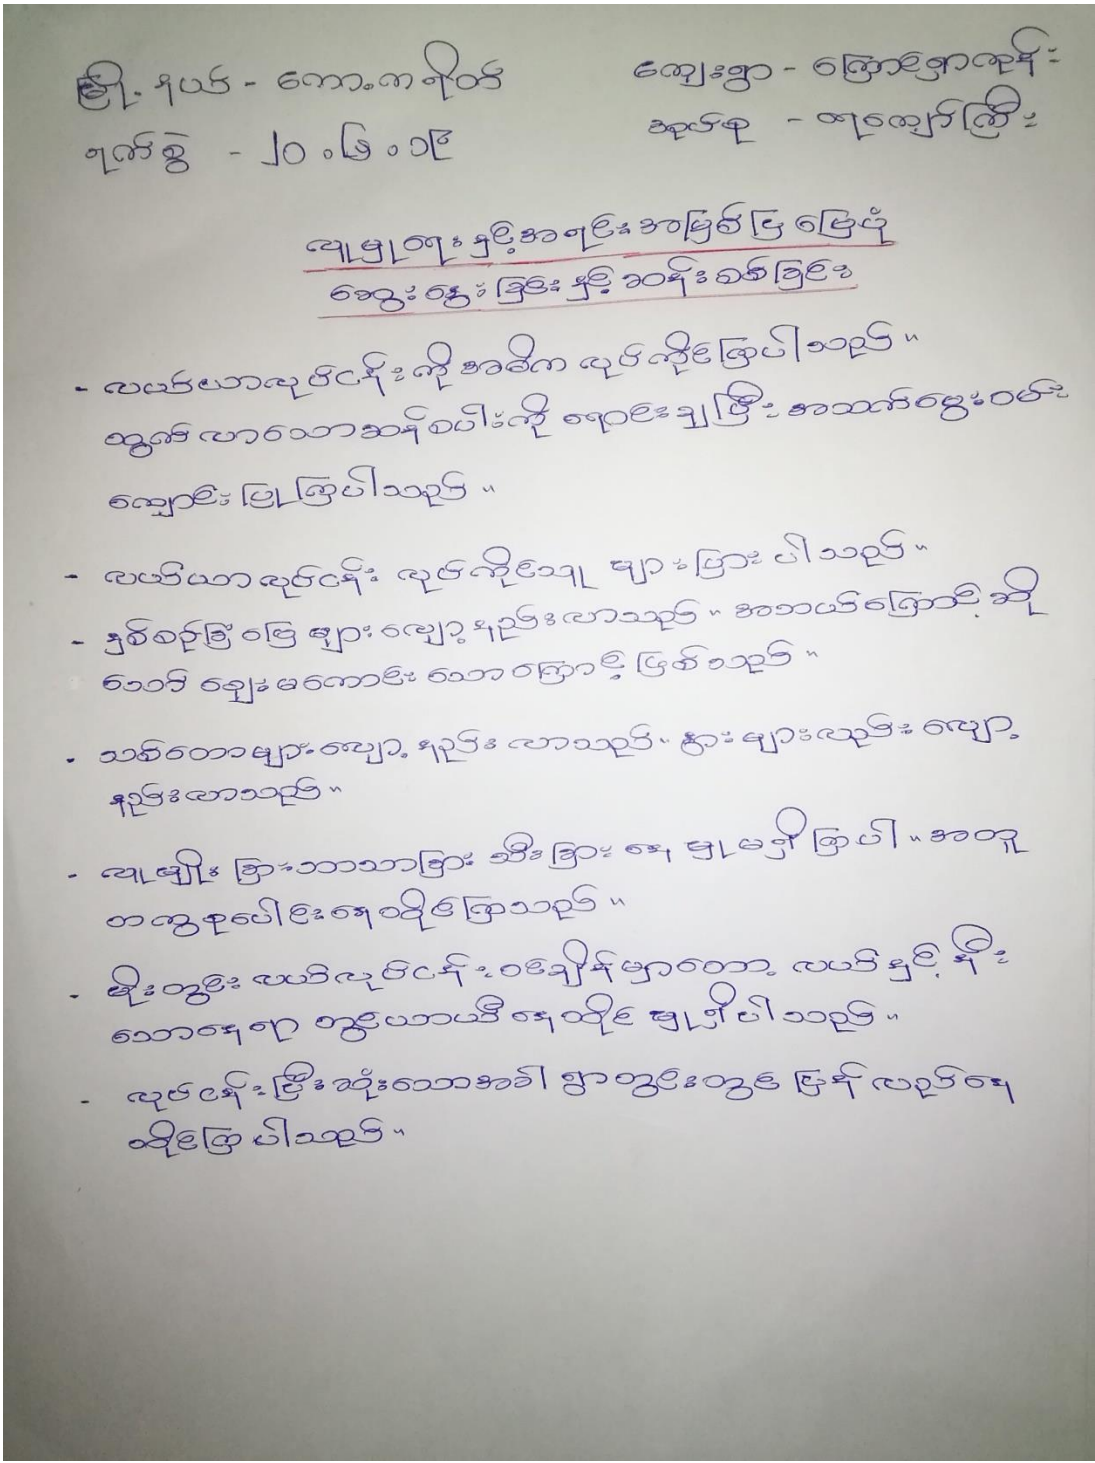 မြို့နယ် - ကော့ကရိတ် ကျေးရွာ - ကြောင်ရှာကုန်း
ရက်စွဲ - ၂၀.၆.၁၉ အုပ်စု - တရကျော်ကြီး
လူမှုရေးနှင့်အရင်းအမြစ်ပြမြေပုံ
ဆွေးနွေးခြင်းနှင့်ဆန်းစစ်ခြင်း
- လယ်ယာလုပ်ငန်းကိုအဓိက လုပ်ကိုင်ကြပါသည်။
ထွက်လာသောဆန်စပါးကို ရောင်းချပြီးအသက်မွေးဝမ်း
ကျောင်းပြုကြပါသည်။
- လယ်ယာလုပ်ငန်း လုပ်ကိုင်သူ များပြားပါသည်။
- နှစ်စဉ်ခြံမြေများလျော့နည်းလာသည်။ အဘယ်ကြောင့်ဆို
သော် ဈေးမကောင်းသောကြောင့်ဖြစ်သည်။
- သစ်တောများလျော့နည်းလာသည်။ နွားများလည်းလျော့
နည်းလာသည်။
- လူမျိုးခြားဘာသာခြား သီးခြားနေမှုမရှိကြပါ။ အတူ
တကွစုပေါင်းနေထိုင်ကြသည်။
- မိုးတွင်းလယ်လုပ်ငန်းဝင်ချိန်မှာတော့ လယ်နှင့်နီး
သောနေရာတွင်ယာယီနေထိုင်မှုရှိပါသည်။
- လုပ်ငန်းပြီးဆုံးသောအခါရွာတွင်းတွင်ပြန်လည်နေ
ထိုင်ကြပါသည်။